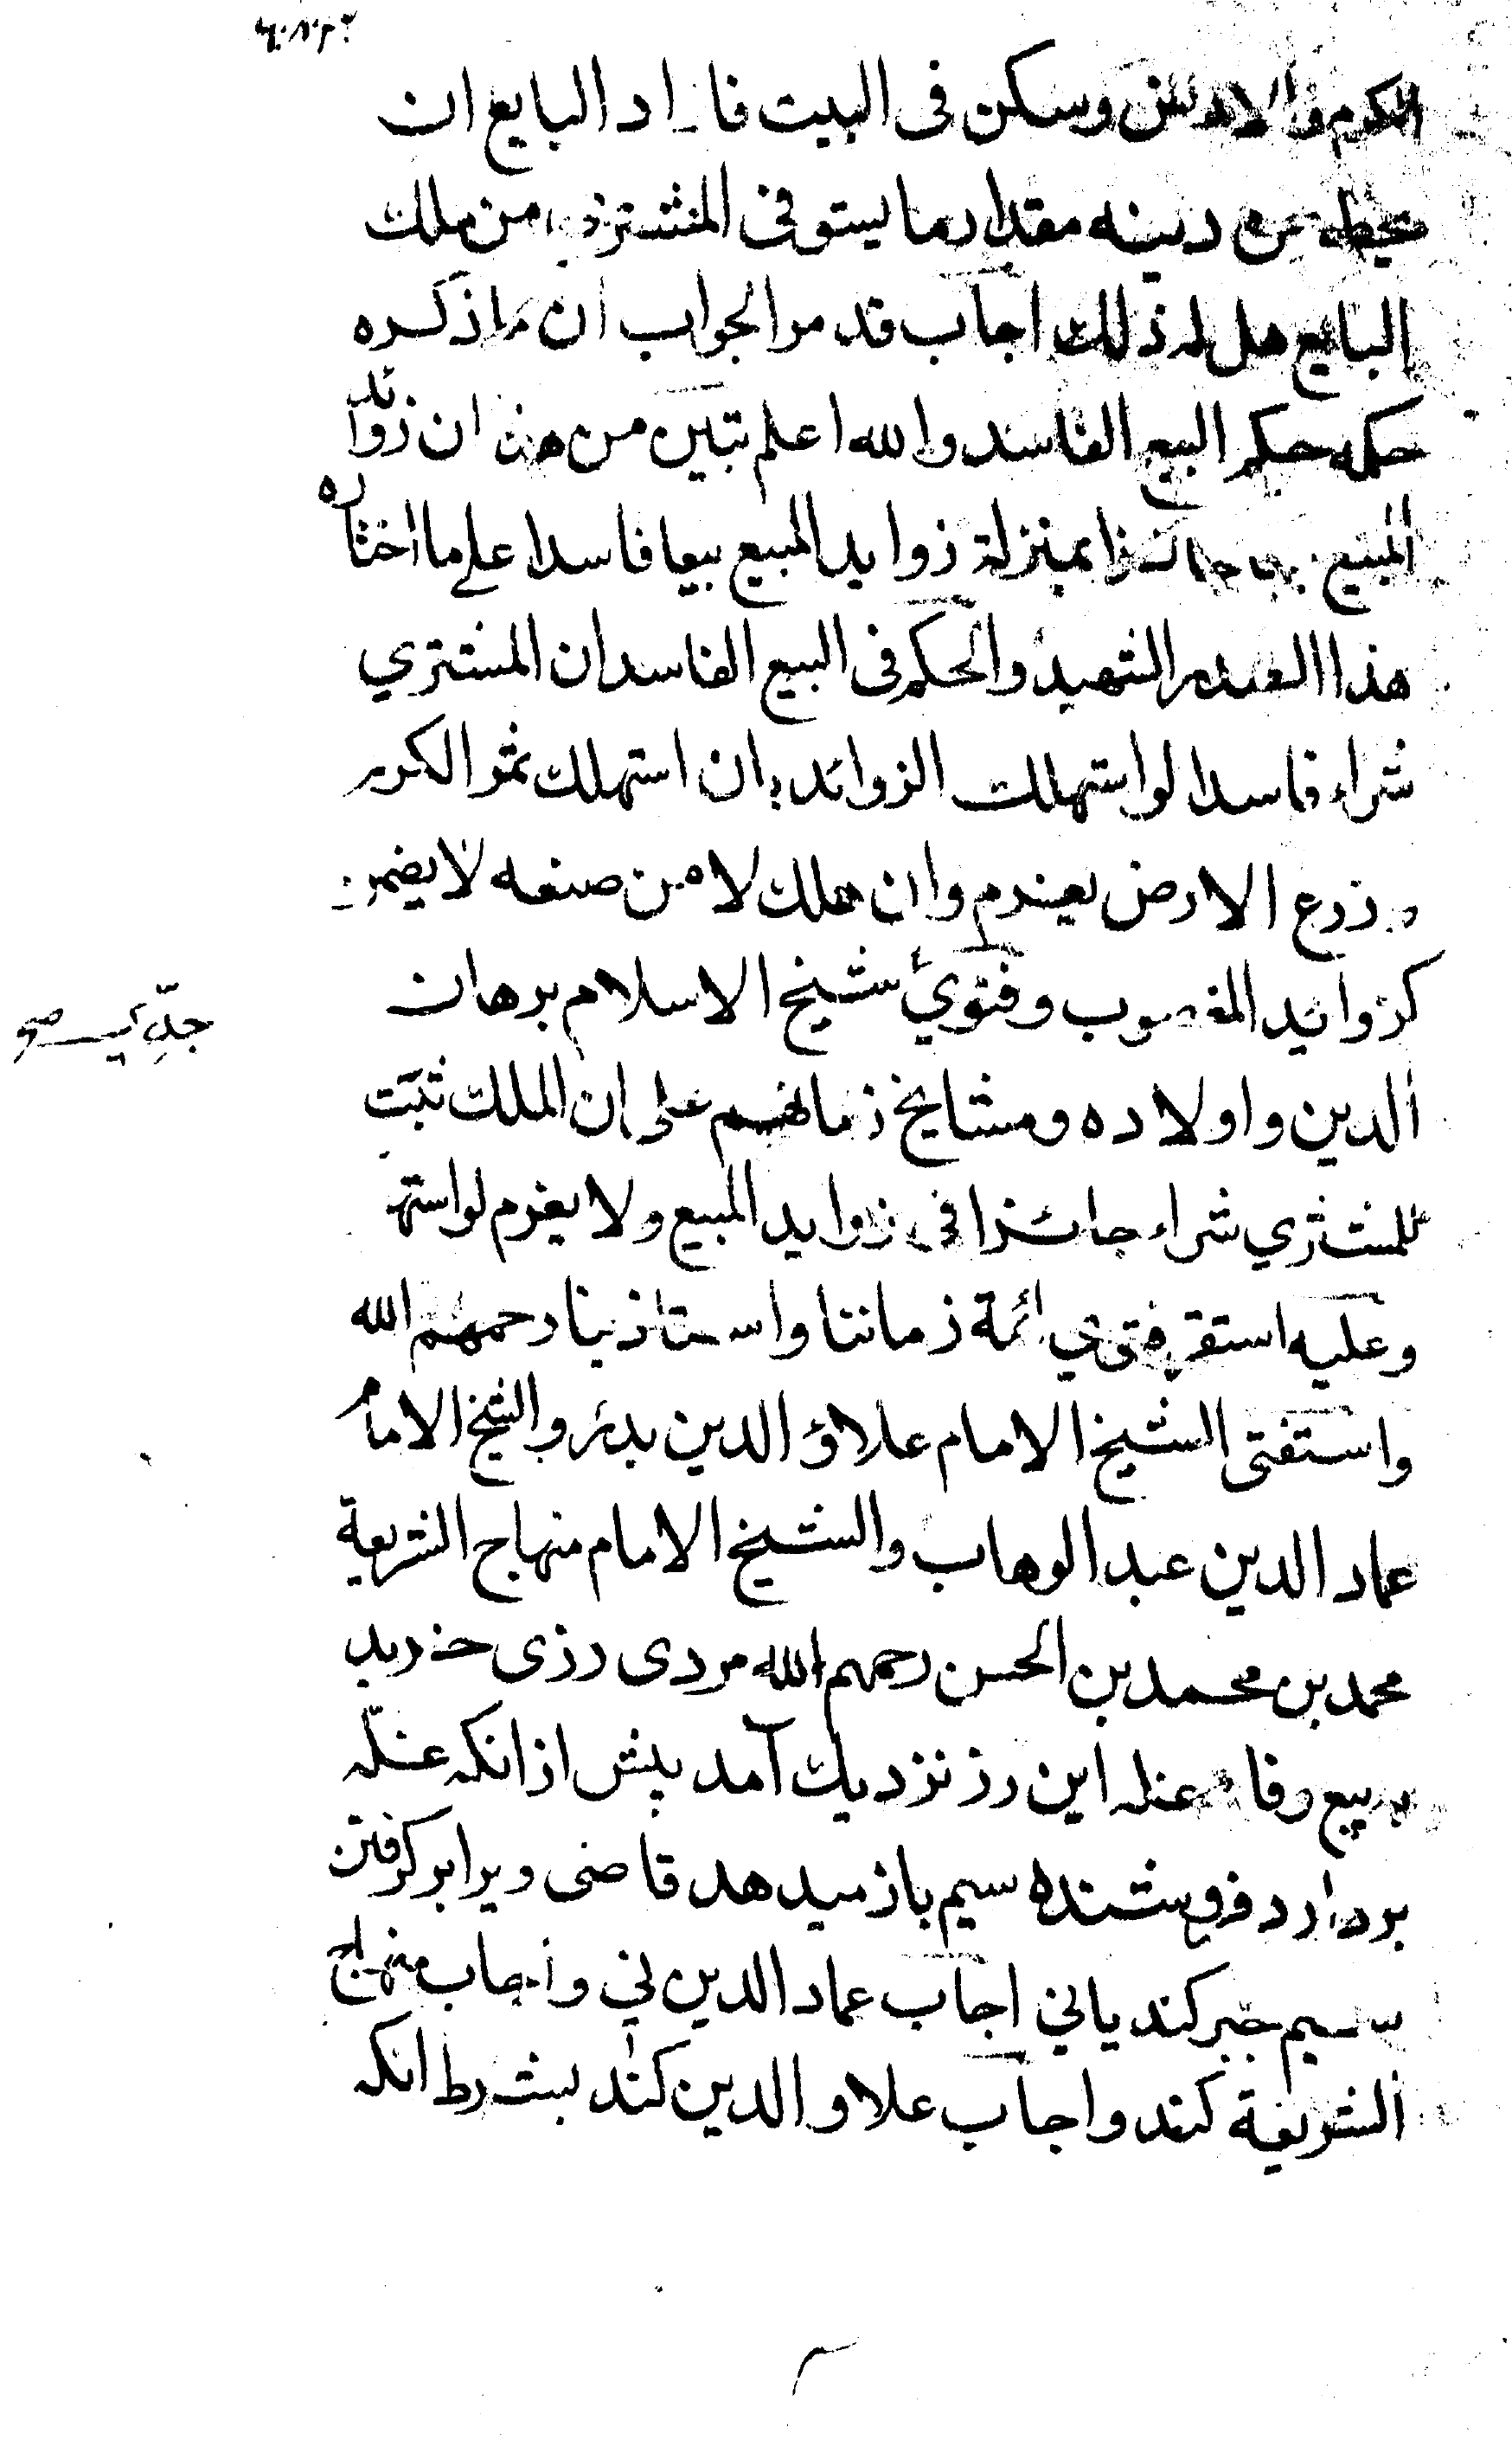 الكرم والارض وسكن فى البيت فاراد البايع ان
يحطه من دينه مقدار ما يستوفى المشترى من ملك
البايع هل له ذلك اجاب قد مر الجواب ان ما ذكره
حكمه حكم البيع الفاسد والله اعلم تبين من هذا ان زوائد
المبيع بيعا جائزا بمنزلة زوايد المبيع بيعا فاسدا على ما اختاره
هذا الصدر الشهيد والحكم فى البيع الفاسد ان المشتري
شراء فاسدا لو استهلك الزوائد بان استهلك ثمر الكرم
وزرع الارض يغرم وان هلك لا من صنعه لا يضمن
كزوائد المغصوب وفتوي شيخ الاسلام برهان
الدين واولاده ومشايخ زمانهم على ان الملك ثبت
للمشتري شراء جائزا فى زوايد المبيع ولا يغرم لو استه
وعليه استقر فتوي ائمة زماننا واستاذينا رحمهم الله
واستفتى الشيخ الامام علاؤ الدين بدر والشيخ الامام
عماد الدين عبد الوهاب والشيخ الامام منهاج الشريعة
محمد بن محمد بن الحسن رحمهم الله مردى رزى خريد
ببيع وفا غله اين رز نزديك آمد پيش از انكه غله
بردارد فروشنده سيم باز ميدهد قاضى ويرا بر كرفتن
سيم جبر كند يا ني اجاب عماد الدين ني واجاب منهاج
الشريعة كند واجاب علاو الدين كند بشرط انكه